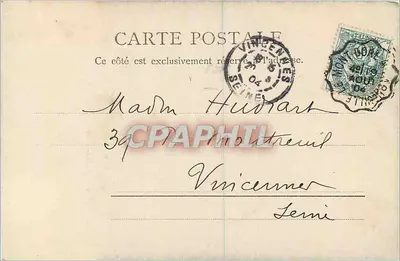 CARTE POSTALE
Ce côté est exclusivement réservé à l'adresse.
VINCENNES
04
SEINE
MONT DORE
AOUT
04
Madm Hudiart
39 Montreuil
Vincennes
Seine
CPAPHIL